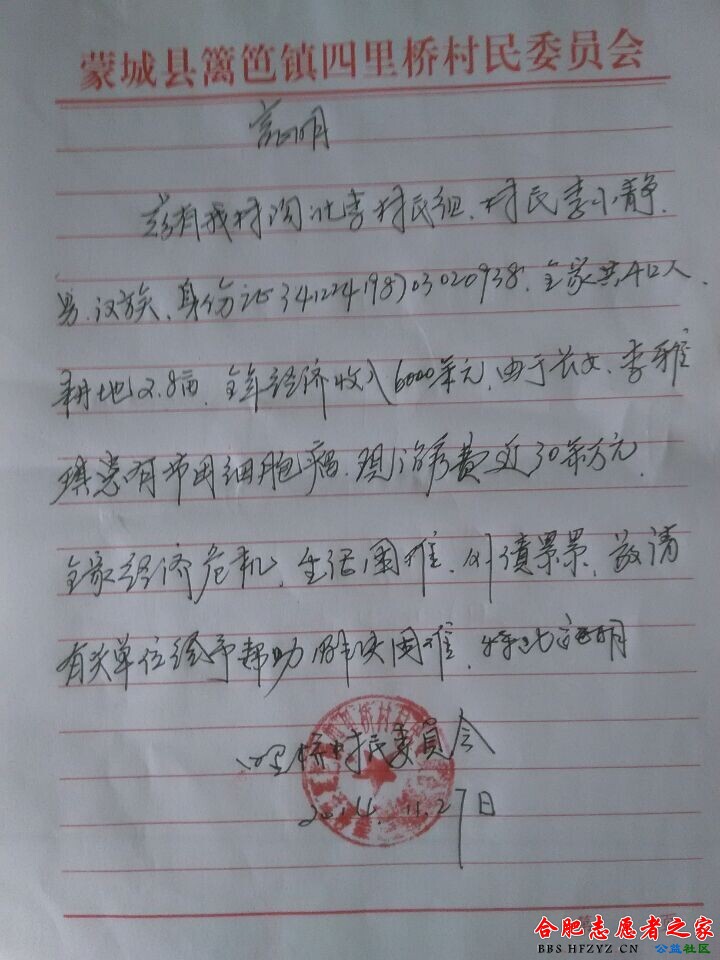 蒙城县篱笆镇四里桥村民委员会
证明
兹有我村沟北李村民组,村民李小静,
男,汉族,身份证341224198703020938,全家共4口人,
耕地2.8亩,全年经济收入6000余元,由于长女,李雅
琪患有市田细胞瘤,现治疗费近30余万元,
全家经济危机,生活困难,外债累累,敬请
有关单位给予帮助解决困难,特此证明
四里桥村民委员会
2014.11.27日
合肥志愿者之家
BBS HFZYZ CN 公益社区